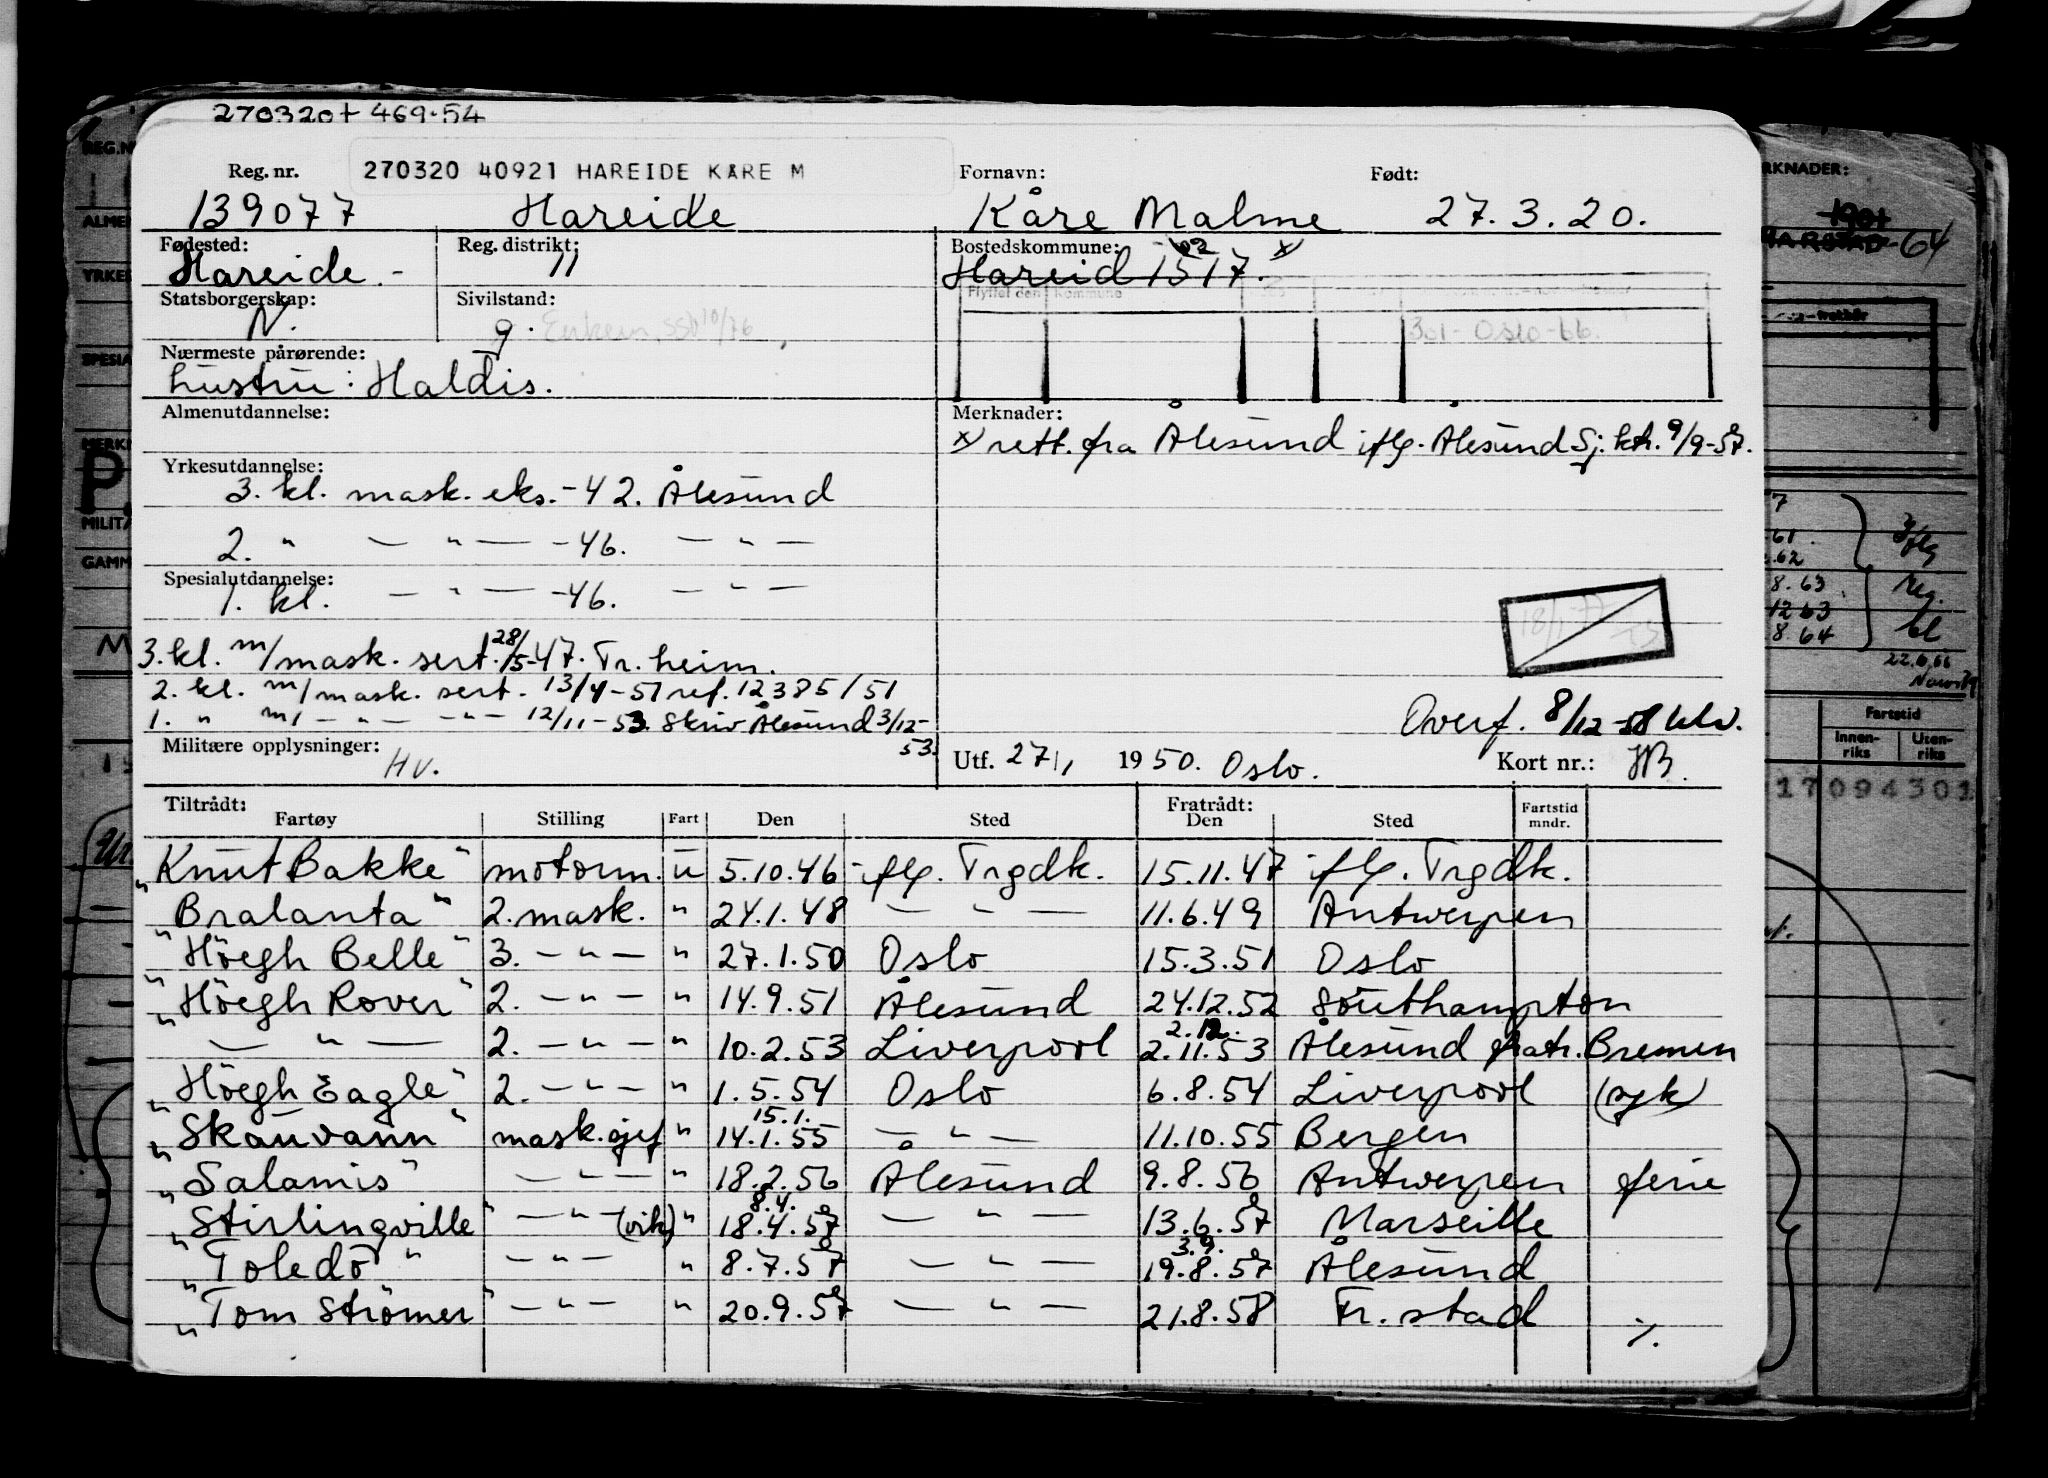 270320+ 469.54
Reg. nr. 270320 40921 HAREIDE KÅRE M Fornavn: Født:
139077 Hareide Kåre Malme 27.3.20.
Fødested: Reg. distrikt: Bostedskommune: 02 x
Hareide. - 11 Hareid 1517.
Statsborgerskap: Sivilstand: Flyttet den Kommune
N. g. Enkem. SSB 10/76 301 - Oslo - 66.
Nærmeste pårørende:
hustru: Haldis.
Almenutdannelse: Merknader:
x) rett. fra Ålesund iflg. Ålesund Sj. ktr. 9/9-57.
Yrkesutdannelse:
3. kl. mask. eks. - 42. Ålesund
2. " — " — - 46. — " —
Spesialutdannelse:
1. kl. — " — - 46. — " —
3. kl. m/mask. sert. 28/5-47. Tr.heim.
2. kl. m/mask. sert. 13/4-51 ref. 12385/51
1. " m/ — " — — " — 12/11-53. Skriv Ålesund 3/12-53.
Overf. 8/12-58
Militære opplysninger: HV.
Utf. 27/1 1950. Oslo. Kort nr.:
Tiltrådt: Fratrådt:
Fartøy Stilling Fart Den Sted Den Sted Fartstid mndr.
"Knut Bakke" motorm. u 5.10.46 iflg. Trgdk. 15.11.47 iflg. Trgdk.
"Bralanta" 2. mask. " 24.1.48 — " — 11.6.49 Antwerpen
"Höegh Belle" 3. — " — " 27.1.50 Oslo 15.3.51 Oslo
"Höegh Rover" 2. — " — " 14.9.51 Ålesund 24.12.52 Southampton
2.12.
— " — 2. — " — " 10.2.53 Liverpool 2.11.53 Ålesund fratr. Bremen
"Höegh Eagle" 2. — " — " 1.5.54 Oslo 6.8.54 Liverpool (syk)
15.1.
"Skauvann" mask.sjef " 14.1.55 — " — 11.10.55 Bergen
"Salamis" — " — " 18.2.56 Ålesund 9.8.56 Antwerpen ferie
8.4.
"Stirlingville" — " — (vik) " 18.4.57 — " — 13.6.57 Marseille
3.9.
"Toledo" — " — " 8.7.57 — " — 19.8.57 Ålesund
"Tom Strömer" — " — " 20.9.57 — " — 21.8.58 Fr.stad
%.
REG.N
ALMEN
YRKES
SPESIA
MERKN
P
MILITÆ
GAMM
M
RKNADER:
1901
HARSTAD - 64
7
61.
.62
8.63
12 63
8.64
22.6.66
Fartstid
Innen-riks Uten-riks
17094301